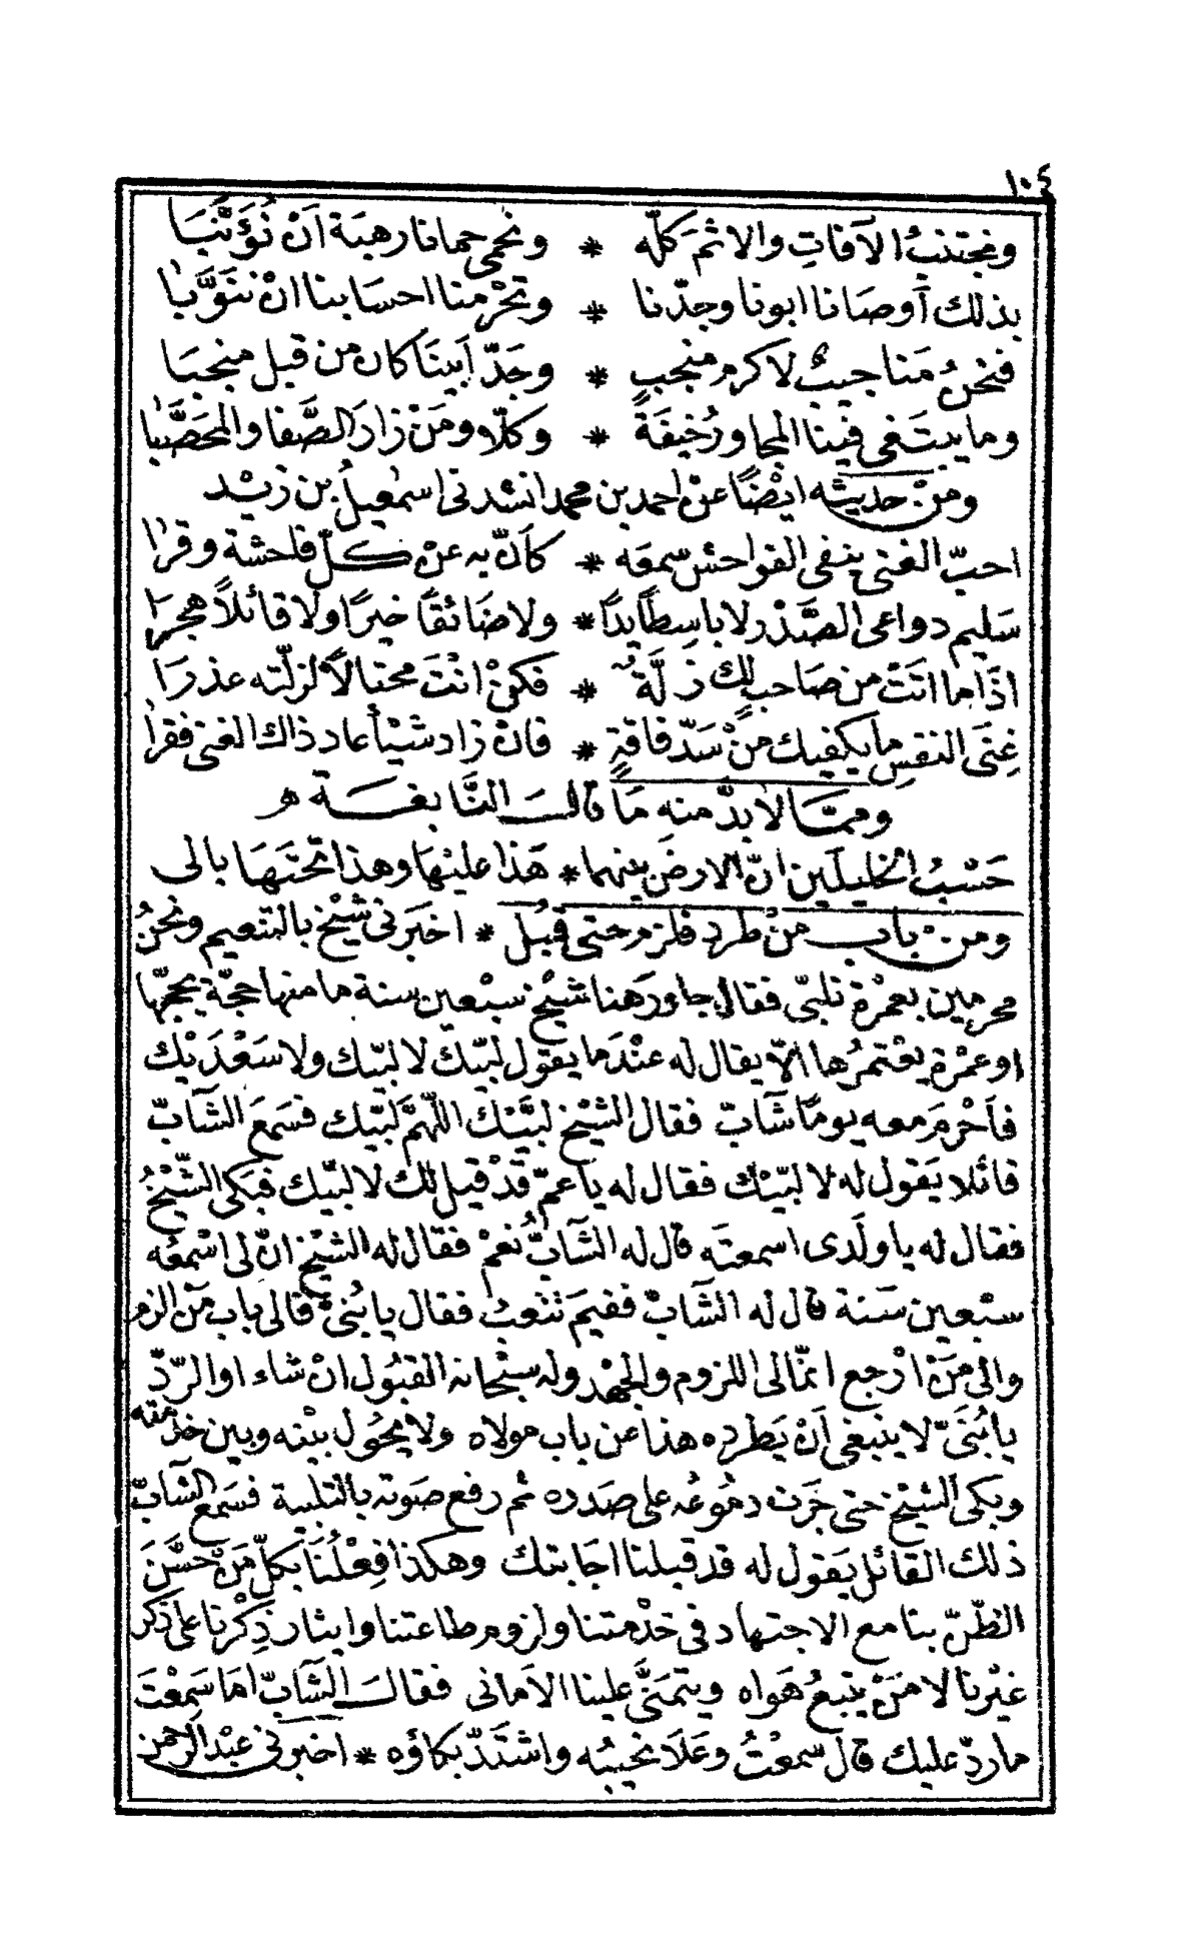 ١٠٤
ونجتنبُ الآفاتِ والاثمَ كلّه * ونحمى حمانا رهبَة اَنْ نُؤَنَّبَا
بذلك اَوصَانا ابونا وجدّنا * وتحْرمنا احسَابنا انْ نتَوَّبا
فنحنُ مَناجيبٌ لاكرم منجبٍ * وجَدّ اَبينَا كان من قبل منجبَا
وما يبتَغى فينا المجاورُ خيفَةً * وكلّا ومَنْ زارَ الصَّفا والمحَصَّبا
ومنْ حديثه ايضًا عنْ احمد بن محمد انشدنى اسمٰعيلُ بن زيْد
احبّ الفتى ينفى الفواحشَ سمعَه * كأنّ به عنْ كلّ فاحشة وقرا
سَليم دواعى الصَّدْر لا باسِطًا يدًا * ولا ضَائقًا خيرًا ولا قائلاً هجرَا
اذَا ما اتَتْ من صَاحبٍ لك زَلَّة * فكنْ انْتَ محتالاً لزلّته عذرَا
غِنَى النفسِ ما يكفيك منْ سَدّ فاقةٍ * فانْ زاد شيْأ عاد ذاك الغنى فقرا
وممّا لا بدَّ منه مَا قالَ النَّابغَة ه
حَسْبُ الخليلَين انّ الارضَ بينهما * هَذا عليْها وهذا تحْتَهَا بالى
ومن باب منْ طرد فلزم حتى قبُل * اخبَرنى شيْخ بالتنعيم ونحنُ
محرمين بعمْرة نلبّى فقال جاورَ هنا شيْخ سبْعين سنة ما منها حجّة يحجّها
اوعمْرة يعْتمرُها الاّ يقال له عنْدَما يقول لبّيك لا لبّيك ولا سَعْدَيْك
فاَحْرَم معه يومًا شآبّ فقال الشيْخ لبَّيْك اللّهمَّ لبّيك فسَمعَ الشآبّ
قائلا يَقول له لا لبّيْك فقال له يا عمّ قدْ قيل لك لا لبّيك فبَكى الشّيْخُ
فقال له يا ولَدى اسمعتَه قال له الشابُّ نعَمْ فقال له الشيْخ انّ لى اسْمعُه
سبْعين سَنة قال له الشآبّ ففيَم تتْعبُ فقال يا بُنىَّ فالى باب مَن الزم
والى مَنْ ارْجع انمّا لى اللزوم والجهْد وله سبْحانه القبُول انْ شاء او الردّ
يا بُنَىّ لا ينبغى اَنْ يَطرده هذا عن باب مولاه ولا يحُول بيْنه وبين خدْمته
وبكى الشيْخ حتى جَرَت دمُوعُه على صَدره ثم رفع صَوته بالتلبية فسَمع الشآبّ
ذلك القائل يَقول له قد قبلنا اجَابتك وهكذا فِعْلُنَا بكلّ مَنْ حسَّنَ
الظّنّ بنا مع الاجتهاد فى خدْمتنا ولزوم طاعتنا وايثار ذِكْرنا على ذكر
غيْرنا لا مَنْ يتبعُ هَواه ويتمَنَّى علينا الاَمانى فقالَ الشآبّ اما سَمِعْتَ
ما ردّ عليك قال سمعْتُ وعَلَا نحيبُه واشتَدّ بكاؤه * اخبرنى عبْد الرحمن